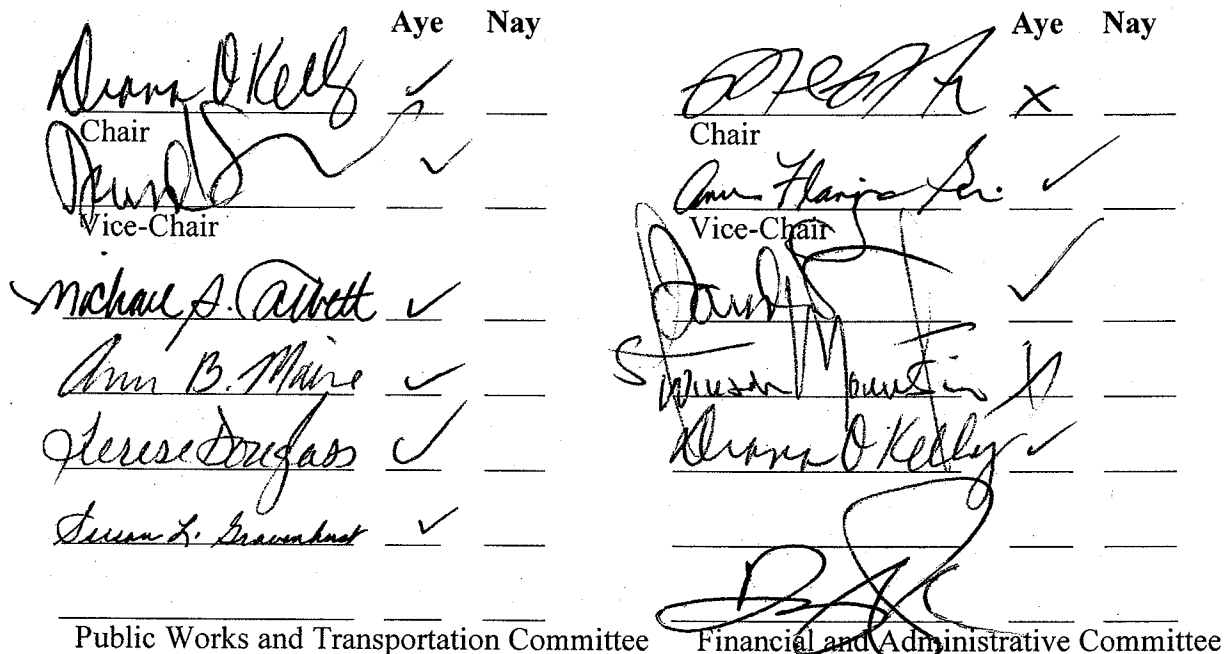 Aye Nay
Diana O'Kelly ✓
Chair
✓
Vice-Chair
Michael S. Talbett ✓
Ann B. Maine ✓
Terese Douglass ✓
Susan L. Gravenhorst ✓
Public Works and Transportation Committee
Aye Nay
X
Chair
Ann Flanigan ✓
Vice-Chair
David ✓
S Mountsier X
Diana O'Kelly ✓
Financial and Administrative Committee